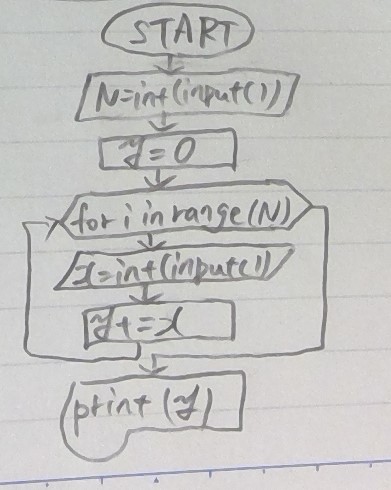 START
N=int(input())
y=0
for i in range(N)
x=int(input())
y+=x
print (y)